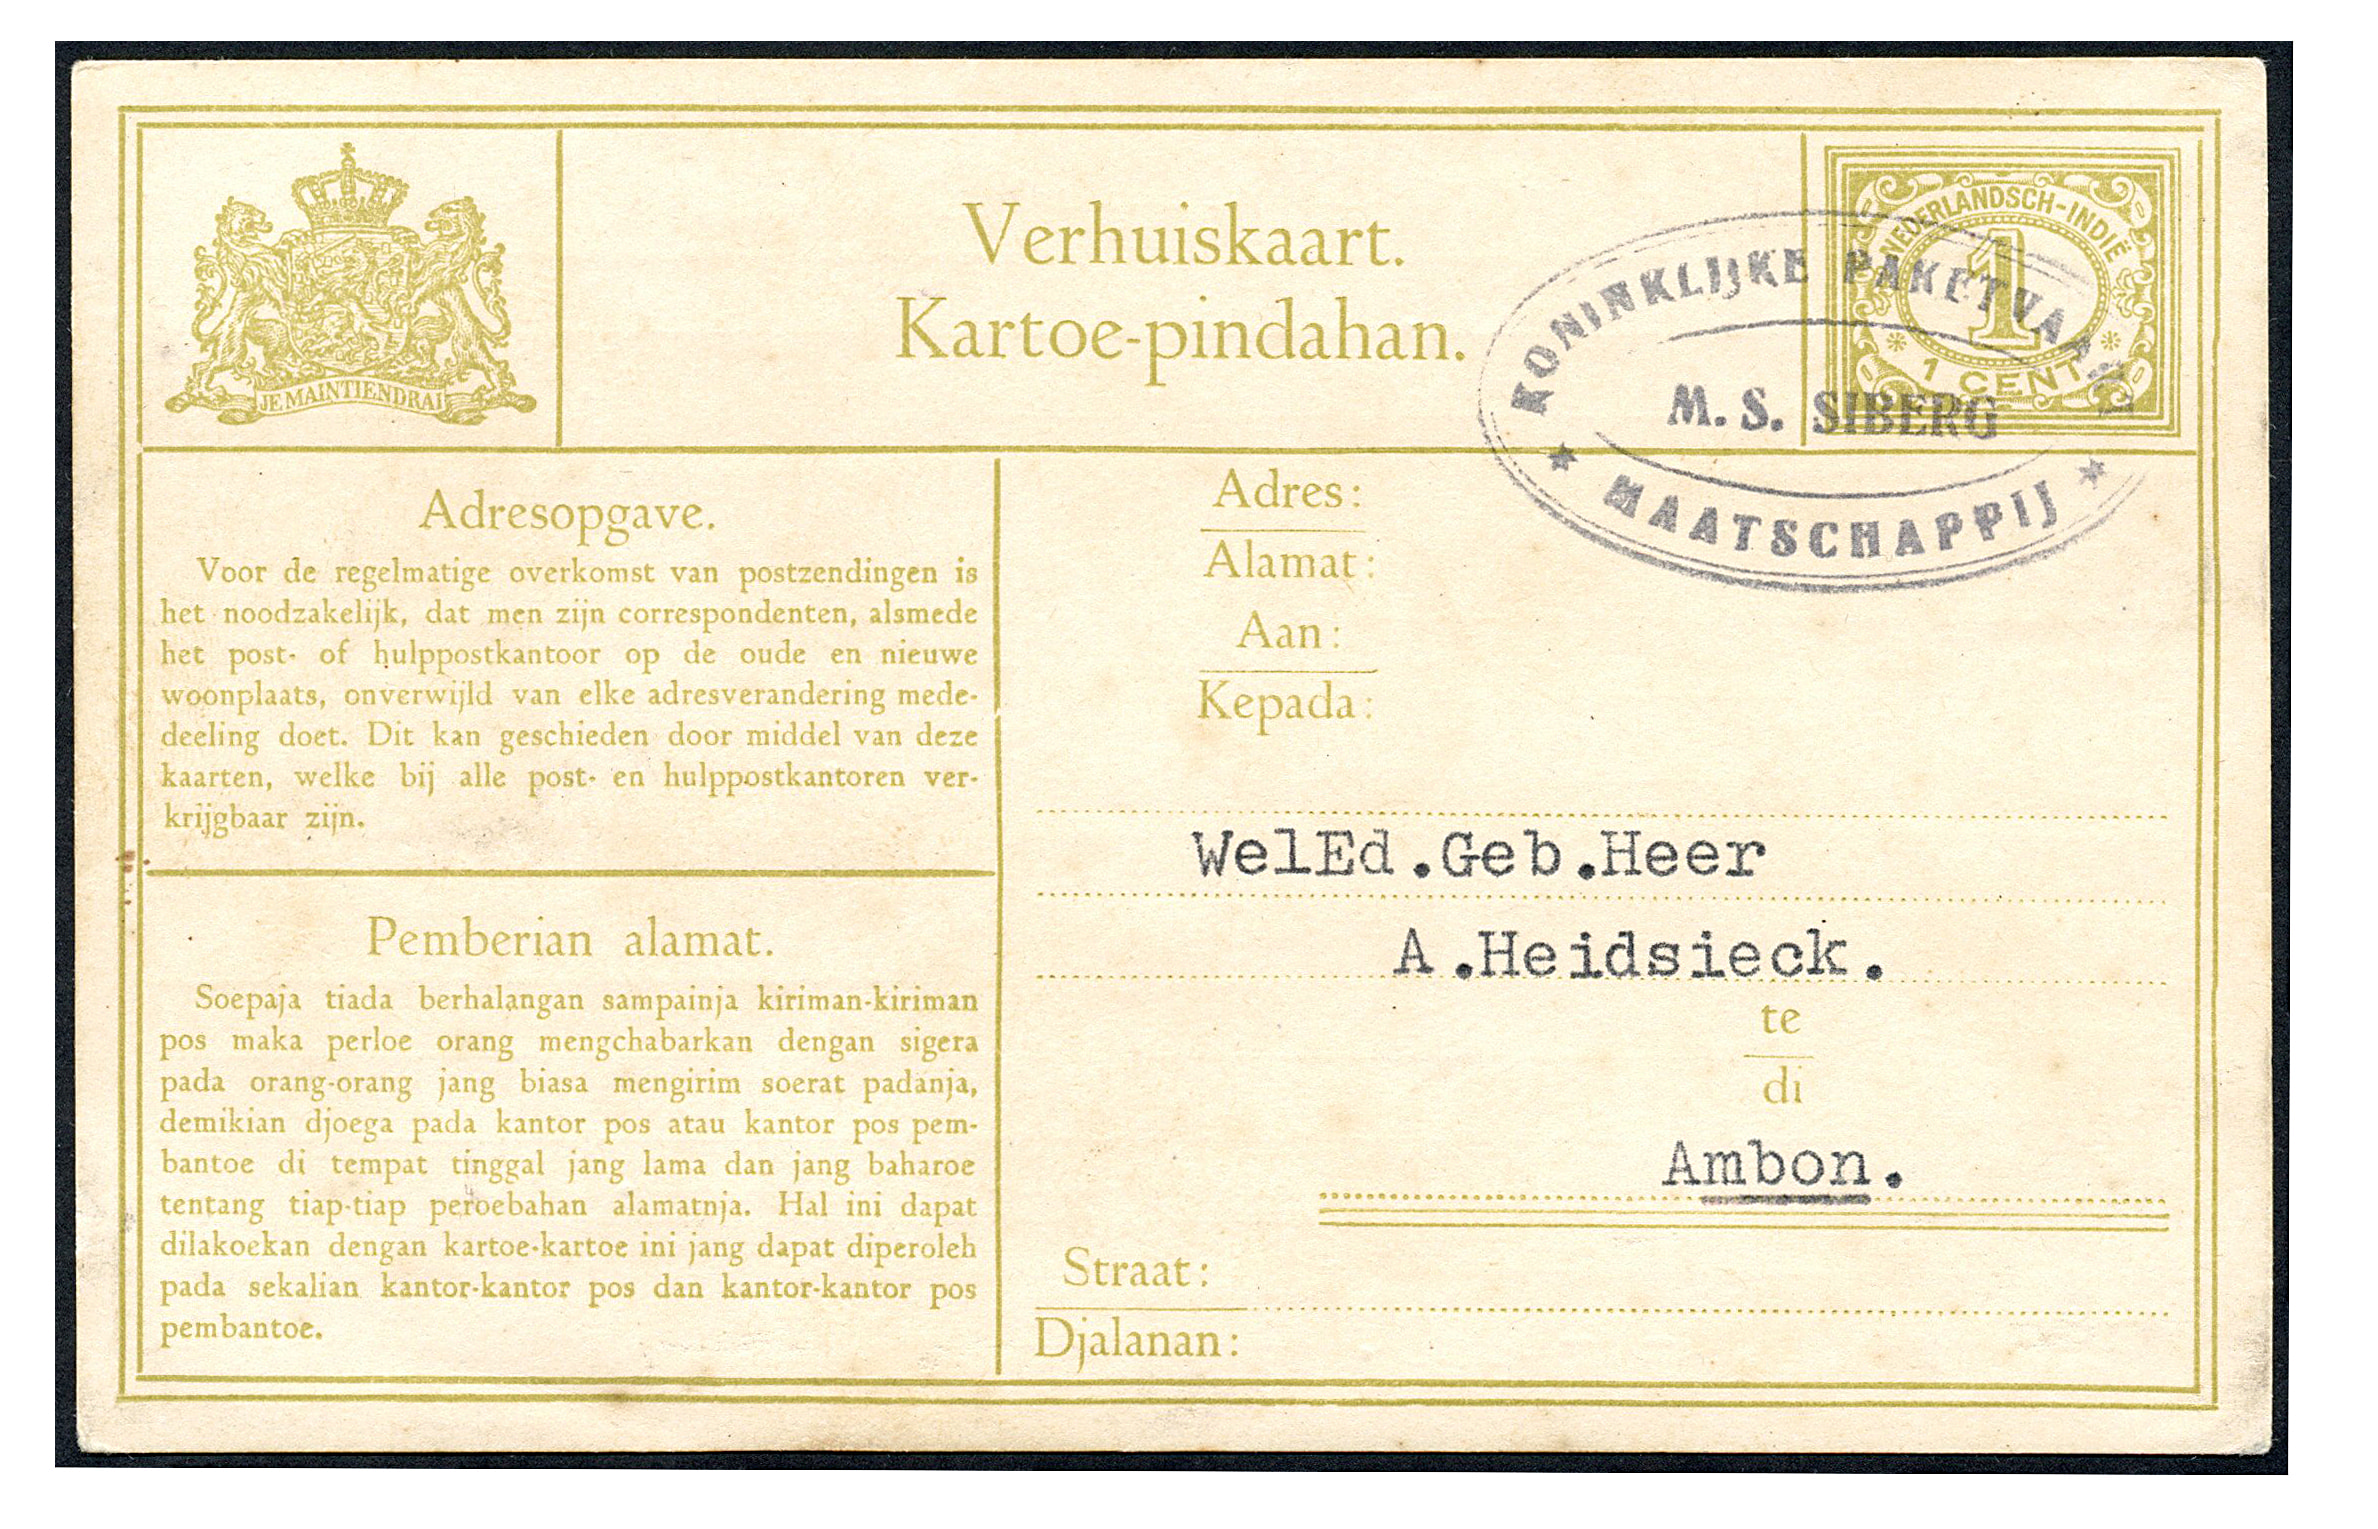 JE MAINTIENDRAI
Verhuiskaart.
Kartoe-pindahan.
NEDERLANDSCH-INDIË
1
1 CENT
KONINKLIJKE PAKETVAART
M. S. SIBERG
MAATSCHAPPIJ
Adresopgave.
Voor de regelmatige overkomst van postzendingen is
het noodzakelijk, dat men zijn correspondenten, alsmede
het post- of hulppostkantoor op de oude en nieuwe
woonplaats, onverwijld van elke adresverandering mede-
deeling doet. Dit kan geschieden door middel van deze
kaarten, welke bij alle post- en hulppostkantoren ver-
krijgbaar zijn.
Pemberian alamat.
Soepaja tiada berhalangan sampainja kiriman-kiriman
pos maka perloe orang mengchabarkan dengan sigera
pada orang-orang jang biasa mengirim soerat padanja,
demikian djoega pada kantor pos atau kantor pos pem-
bantoe di tempat tinggal jang lama dan jang baharoe
tentang tiap-tiap peroebahan alamatnja. Hal ini dapat
dilakoekan dengan kartoe-kartoe ini jang dapat diperoleh
pada sekalian kantor-kantor pos dan kantor-kantor pos
pembantoe.
Adres:
Alamat:
Aan:
Kepada:
WelEd.Geb.Heer
A.Heidsieck.
te
di
Ambon.
Straat:
Djalanan: